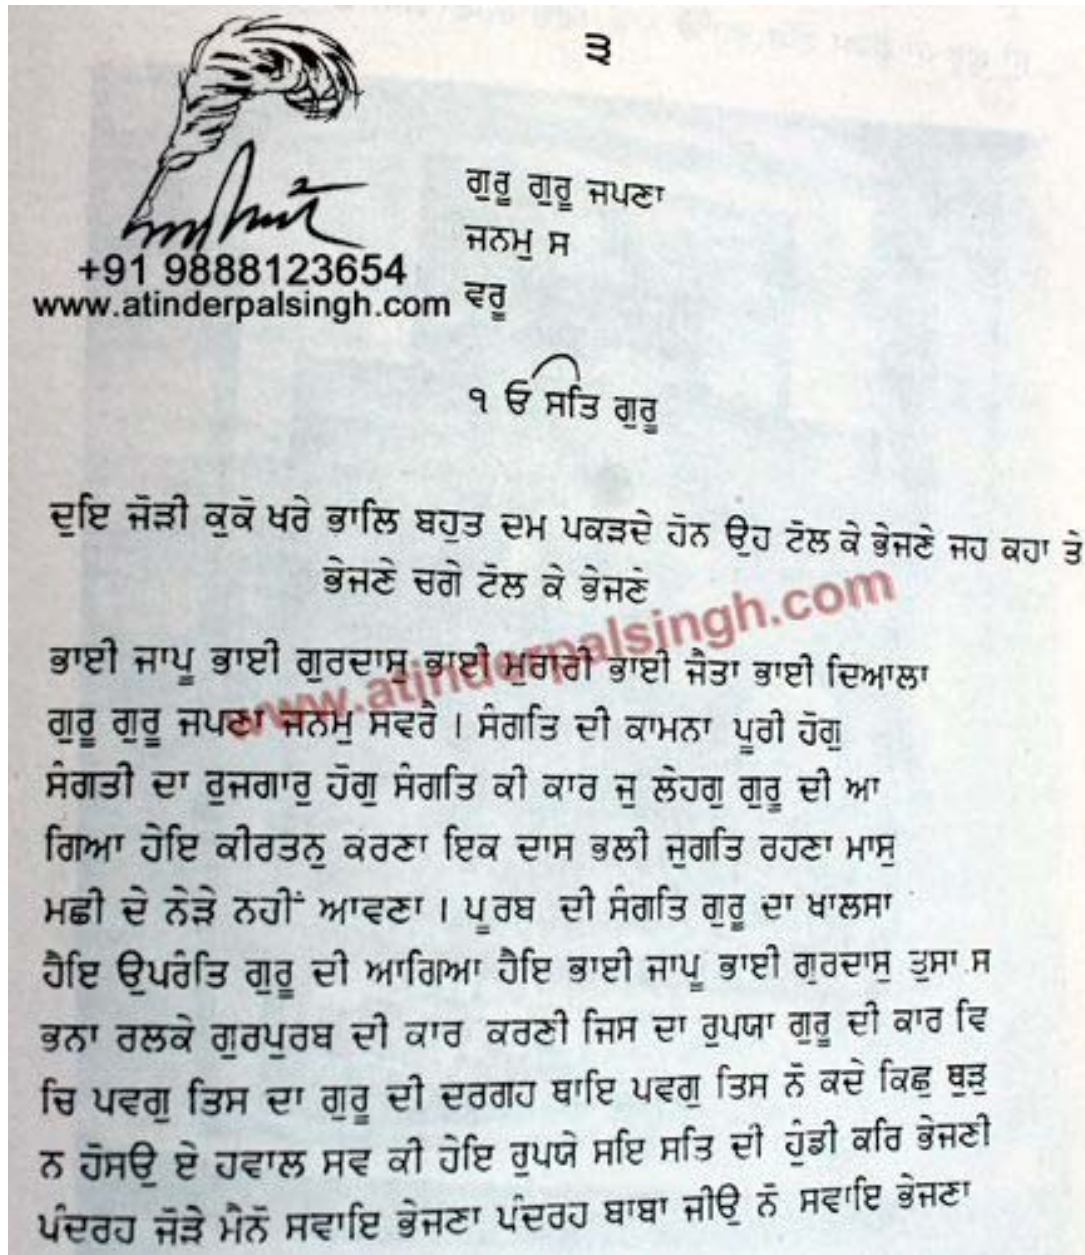 ੩
ਗੁਰੂ ਗੁਰੂ ਜਪਣਾ
ਜਨਮੁ ਸ
ਵਰੂ
+91 9888123654
www.atinderpalsingh.com
੧ ਓ ਸਤਿ ਗੁਰੂ
ਦੁਇ ਜੋੜੀ ਕੁਕੋ ਖਰੇ ਭਾਲਿ ਬਹੁਤ ਦਮ ਪਕੜਦੇ ਹੋਨ ਉਹ ਟੋਲ ਕੇ ਭੇਜਣੇ ਜਹ ਕਹਾ ਤੇ
ਭੇਜਣੇ ਚਗੇ ਟੋਲ ਕੇ ਭੇਜਣੇ
www.atinderpalsingh.com
ਭਾਈ ਜਾਪੂ ਭਾਈ ਗੁਰਦਾਸੁ ਭਾਈ ਮੁਰਾਰੀ ਭਾਈ ਜੈਤਾ ਭਾਈ ਦਿਆਲਾ
ਗੁਰੂ ਗੁਰੂ ਜਪਣਾ ਜਨਮੁ ਸਵਰੈ । ਸੰਗਤਿ ਦੀ ਕਾਮਨਾ ਪੂਰੀ ਹੋਗੁ
ਸੰਗਤੀ ਦਾ ਰੁਜਗਾਰੁ ਹੋਗੁ ਸੰਗਤਿ ਕੀ ਕਾਰ ਜੁ ਲੇਹਗੁ ਗੁਰੂ ਦੀ ਆ
ਗਿਆ ਹੇਇ ਕੀਰਤਨੁ ਕਰਣਾ ਇਕ ਦਾਸ ਭਲੀ ਜੁਗਤਿ ਰਹਣਾ ਮਾਸੁ
ਮਛੀ ਦੇ ਨੇੜੇ ਨਹੀਂ ਆਵਣਾ । ਪੂਰਬ ਦੀ ਸੰਗਤਿ ਗੁਰੂ ਦਾ ਖਾਲਸਾ
ਹੈਇ ਉਪਰੰਤਿ ਗੁਰੂ ਦੀ ਆਗਿਆ ਹੈਇ ਭਾਈ ਜਾਪੂ ਭਾਈ ਗੁਰਦਾਸੁ ਤੁਸਾ ਸ
ਭਨਾ ਰਲਕੇ ਗੁਰਪੁਰਬ ਦੀ ਕਾਰ ਕਰਣੀ ਜਿਸ ਦਾ ਰੁਪਯਾ ਗੁਰੂ ਦੀ ਕਾਰ ਵਿ
ਚਿ ਪਵਗੁ ਤਿਸ ਦਾ ਗੁਰੂ ਦੀ ਦਰਗਹ ਥਾਇ ਪਵਗੁ ਤਿਸ ਨੋ ਕਦੇ ਕਿਛੁ ਥੁੜੁ
ਨ ਹੋਸਉ ਏ ਹਵਾਲ ਸਵ ਕੀ ਹੇਇ ਰੁਪਯੇ ਸਇ ਸਤਿ ਦੀ ਹੁੰਡੀ ਕਰਿ ਭੇਜਣੀ
ਪੰਦਰਹ ਜੋੜੇ ਮੈਨੋ ਸਵਾਇ ਭੇਜਣਾ ਪੰਦਰਹ ਬਾਬਾ ਜੀਉ ਨੋ ਸਵਾਇ ਭੇਜਣਾ